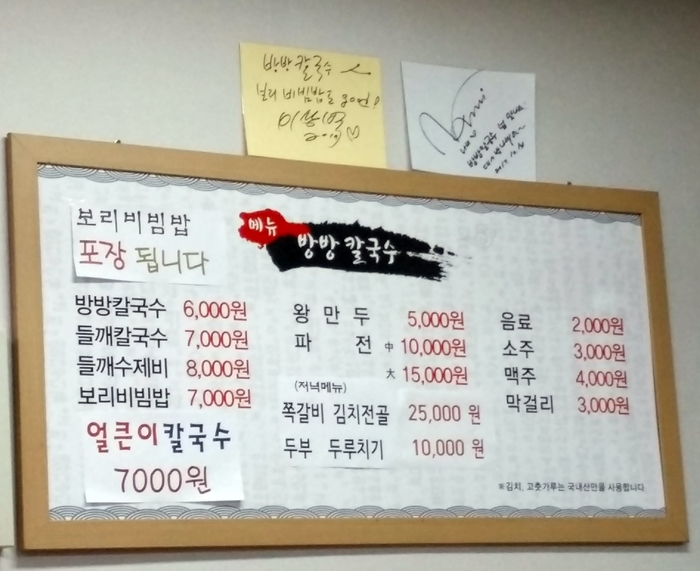 방방칼국수
보리비빔밥도
메뉴
방방칼국수
보리비빔밥
포장 됩니다
방방칼국수 6,000원
들깨칼국수 7,000원
들깨수제비 8,000원
보리비빔밥 7,000원
얼큰이칼국수
7000원
왕만두 5,000원
파전 中 10,000원
大 15,000원
(저녁메뉴)
쪽갈비 김치전골 25,000 원
두부 두루치기 10,000 원
음료 2,000원
소주 3,000원
맥주 4,000원
막걸리 3,000원
※김치, 고춧가루는 국내산만을 사용합니다